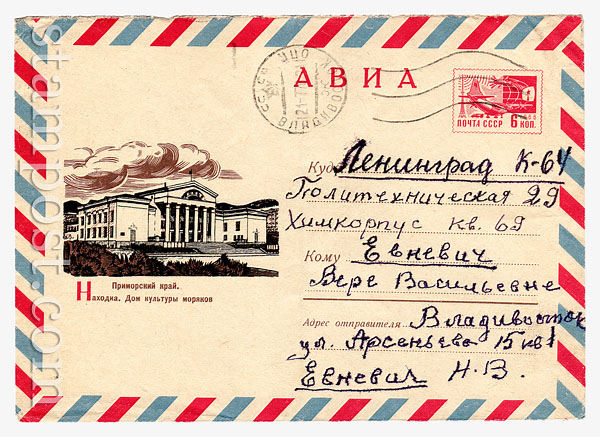 АВИА
ПОЧТА СССР 6 КОП.
Куда Ленинград К-64
Политехническая 29
Химкорпус кв. 69
Кому Евневич
Вере Васильевне
Адрес отправителя Владивосток
ул. Арсеньева 15 кв 1
Евневич Н.В.
Приморский край.
Находка. Дом культуры моряков
stampost.com